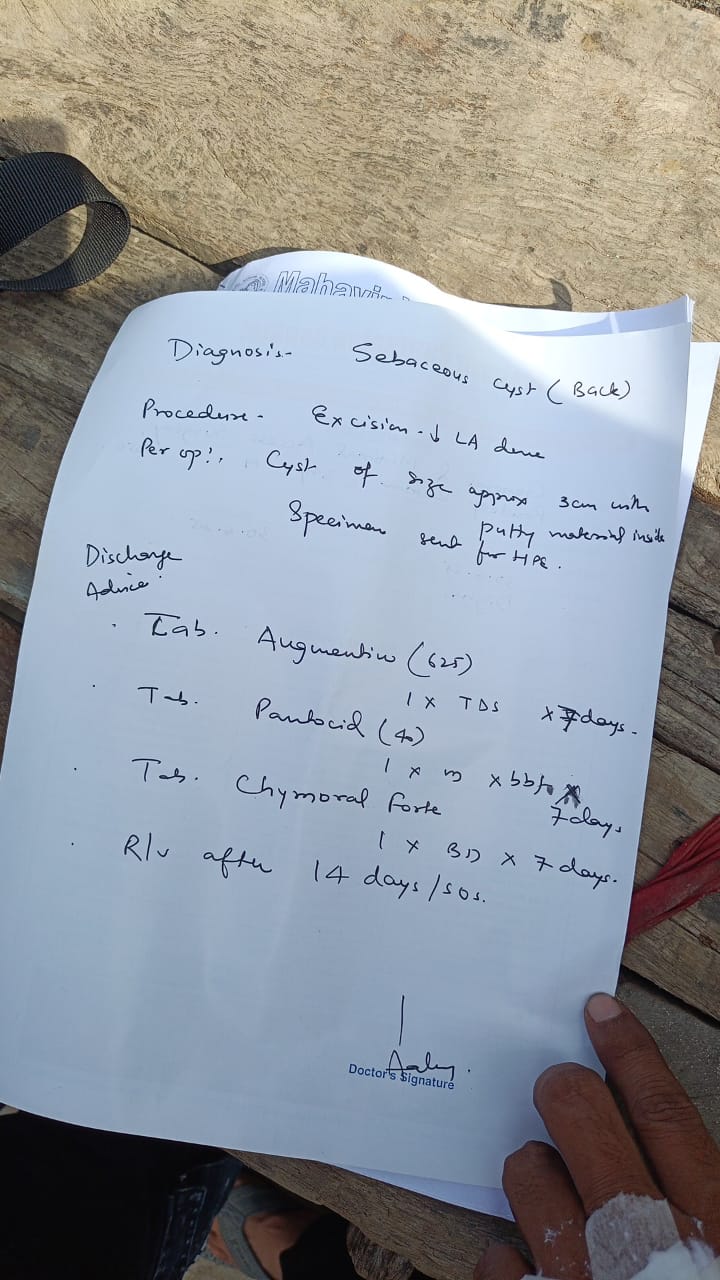 Mahavir
Diagnosis- Sebaceous cyst (Back)
Procedure- Excision ↓ LA done
Per op:. Cyst of size approx 3cm with
putty material inside
Specimen sent for HPE.
Discharge
Advice.
. Tab. Augmentin (625)
1 x TDS x 7 days.
. Tab. Pantocid (40)
1 x x bbf x
7 days.
. Tab. Chymoral forte
1 x BD x 7 days.
. R/v after 14 days/sos.
Doctor's Signature